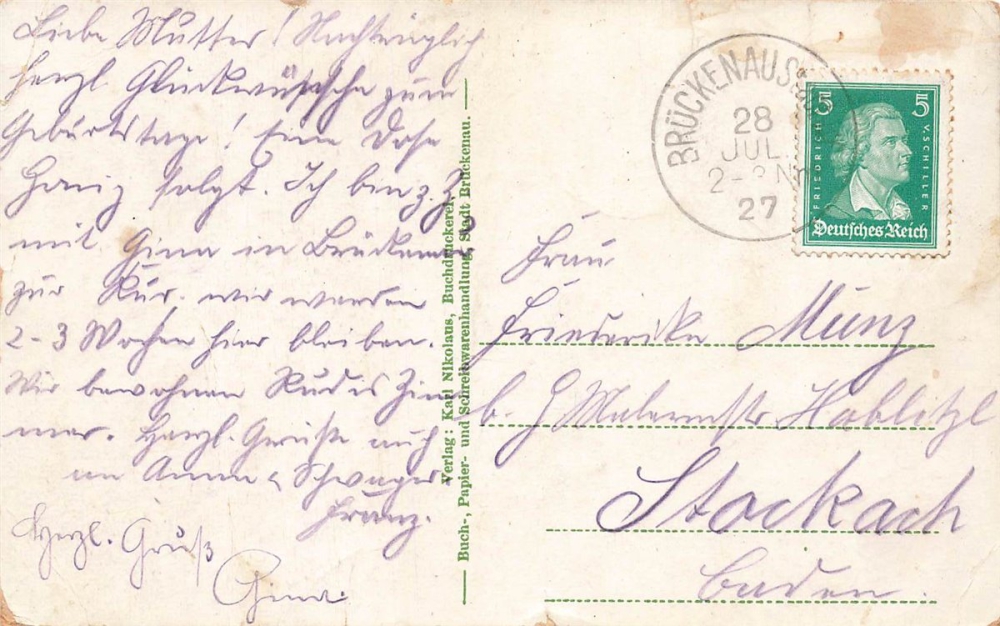 Liebe Mutter! Nachträglich
herzl. Glückwünsche zum
Geburtstage! Eine Dose
Honig folgt. Ich bin z. Z.
mit Gina in Brückenau
zur Kur. wir werden
2-3 Wochen hier bleiben.
Wir bewohnen Rudis Zim
mer. Herzl. Grüße auch
an Anna & Schwager
Franz.
Herzl. Gruß
Gina.
Verlag: Karl Nikolaus, Buchdruckerei,
Buch-, Papier- und Schreibwarenhandlung, Stadt Brückenau.
BRÜCKENAU STADT
28
JUL
2-3 Nm
27
5 5
FRIEDRICH V. SCHILLER
Deutsches Reich
Frau
Friederike Münz
b. H Malermstr Hablitzl
Stockach
Baden.